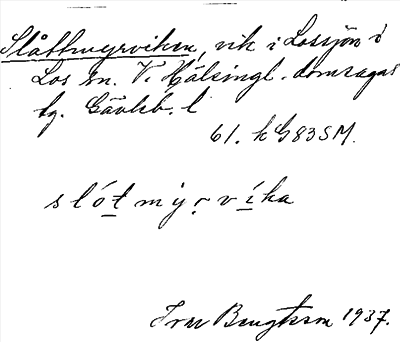 Slåttmyrviken, vik i Lossjön i
Los sn. V. Hälsingl. domsagas
tg. Gävleb. l
61. k G83SM.
slótmyrvíka
Ivar Bengtsson 1937.